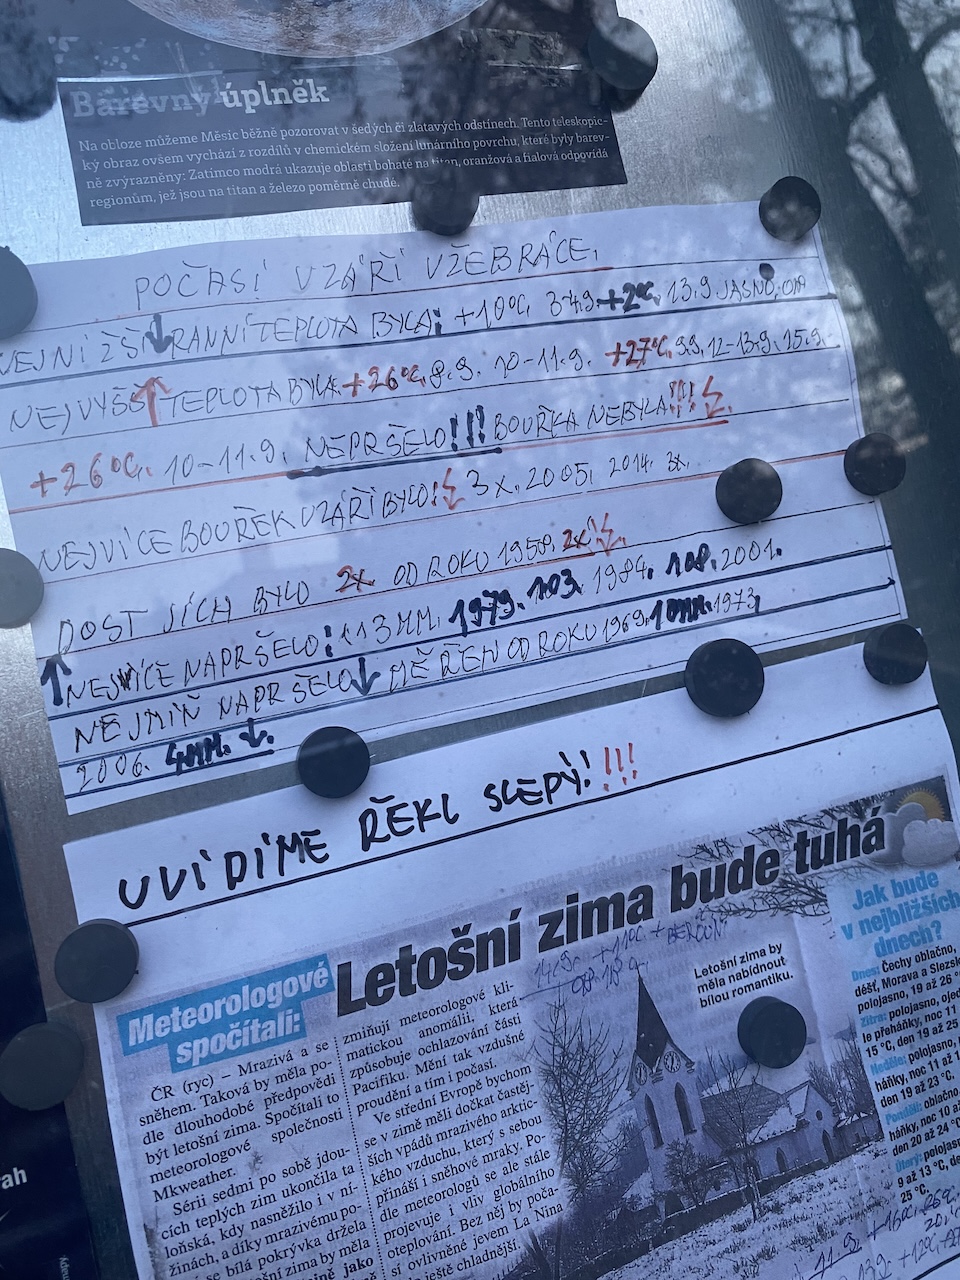 Barevný úplněk
Na obloze můžeme Měsíc běžně pozorovat v šedých či zlatavých odstínech. Tento teleskopic-
ký obraz ovšem vychází z rozdílů v chemickém složení lunárního povrchu, které byly barev-
ně zvýrazněny: Zatímco modré ukazuje oblasti bohaté na titan, oranžová a fialová odpovídá
regionům, jež jsou na titan a železo poměrně chudé.
POČASÍ V ZÁŘÍ V ŽEBRÁCE.
NEJNIŽŠÍ ↓ RANNÍ TEPLOTA BYLA: +10°C, 3-4.9. +2°C, 13.9 JASNO,
NEJVYŠŠÍ ↑ TEPLOTA BYLA: +26°C, 8.9. 10-11.9. +27°C, 9.9, 12-13.9, 15.9.
+26°C. 10-11.9. NEPRŠELO!!! BOUŘKA NEBYLA!!!
NEJVÍCE BOUŘEK V ZÁŘÍ BYLO! 3x. 2005. 2014. 3x.
DOST JÍCH BYLO 2x OD ROKU 1958. 2x
↑ NEJVÍCE NAPRŠELO: 113 MM. 1979. 103. 1984. 108. 2001.
NEJMIŇ NAPRŠELO ↓ MĚŘEN OD ROKU 1969. 10MM. 1973,
2006. 4MM. ↓.
UVIDÍME ŘEKL SLEPÝ!!!!
Letošní zima bude tuhá
Meteorologové
spočítali:
ČR (ryc) – Mrazivá a se
sněhem. Taková by měla po-
dle dlouhodobé předpovědi
být letošní zima. Spočítali to
meteorologové společnosti
Mkweather.
Sérii sedmi po sobě jdou-
cích teplých zim ukončila ta
loňská, kdy nasněžilo i v ní-
žinách, a díky mrazivému po-
se bílá pokrývka držela
zima by měla
jako
zmiňují meteorologové kli-
matickou anomálii, která
způsobuje ochlazování části
Pacifiku. Mění tak vzdušné
proudění a tím i počasí.
Ve střední Evropě bychom
se v zimě měli dočkat častěj-
ších vpádů mrazivého arktic-
kého vzduchu, který s sebou
přináší i sněhové mraky. Po-
dle meteorologů se ale stále
projevuje i vliv globálního
oteplování. Bez něj by poča-
sí ovlivněné jevem La Nina
ještě chladnější.
Letošní zima by
měla nabídnout
bílou romantiku.
Jak bude
v nejbližších
dnech?
Dnes: Čechy oblačno,
déšť, Morava a Slezsk
polojasno, 19 až 26 °
Zítra: polojasno, ojed
le přeháňky, noc 11
15 °C, den 19 až 25
Neděle: polojasno,
háňky, noc 11 až 1
den 19 až 23 °C.
Pondělí: oblačno,
háňky, noc 10 až
den 20 až 24 °C
Úterý: polojasno
9 až 13 °C, de
25 °C.